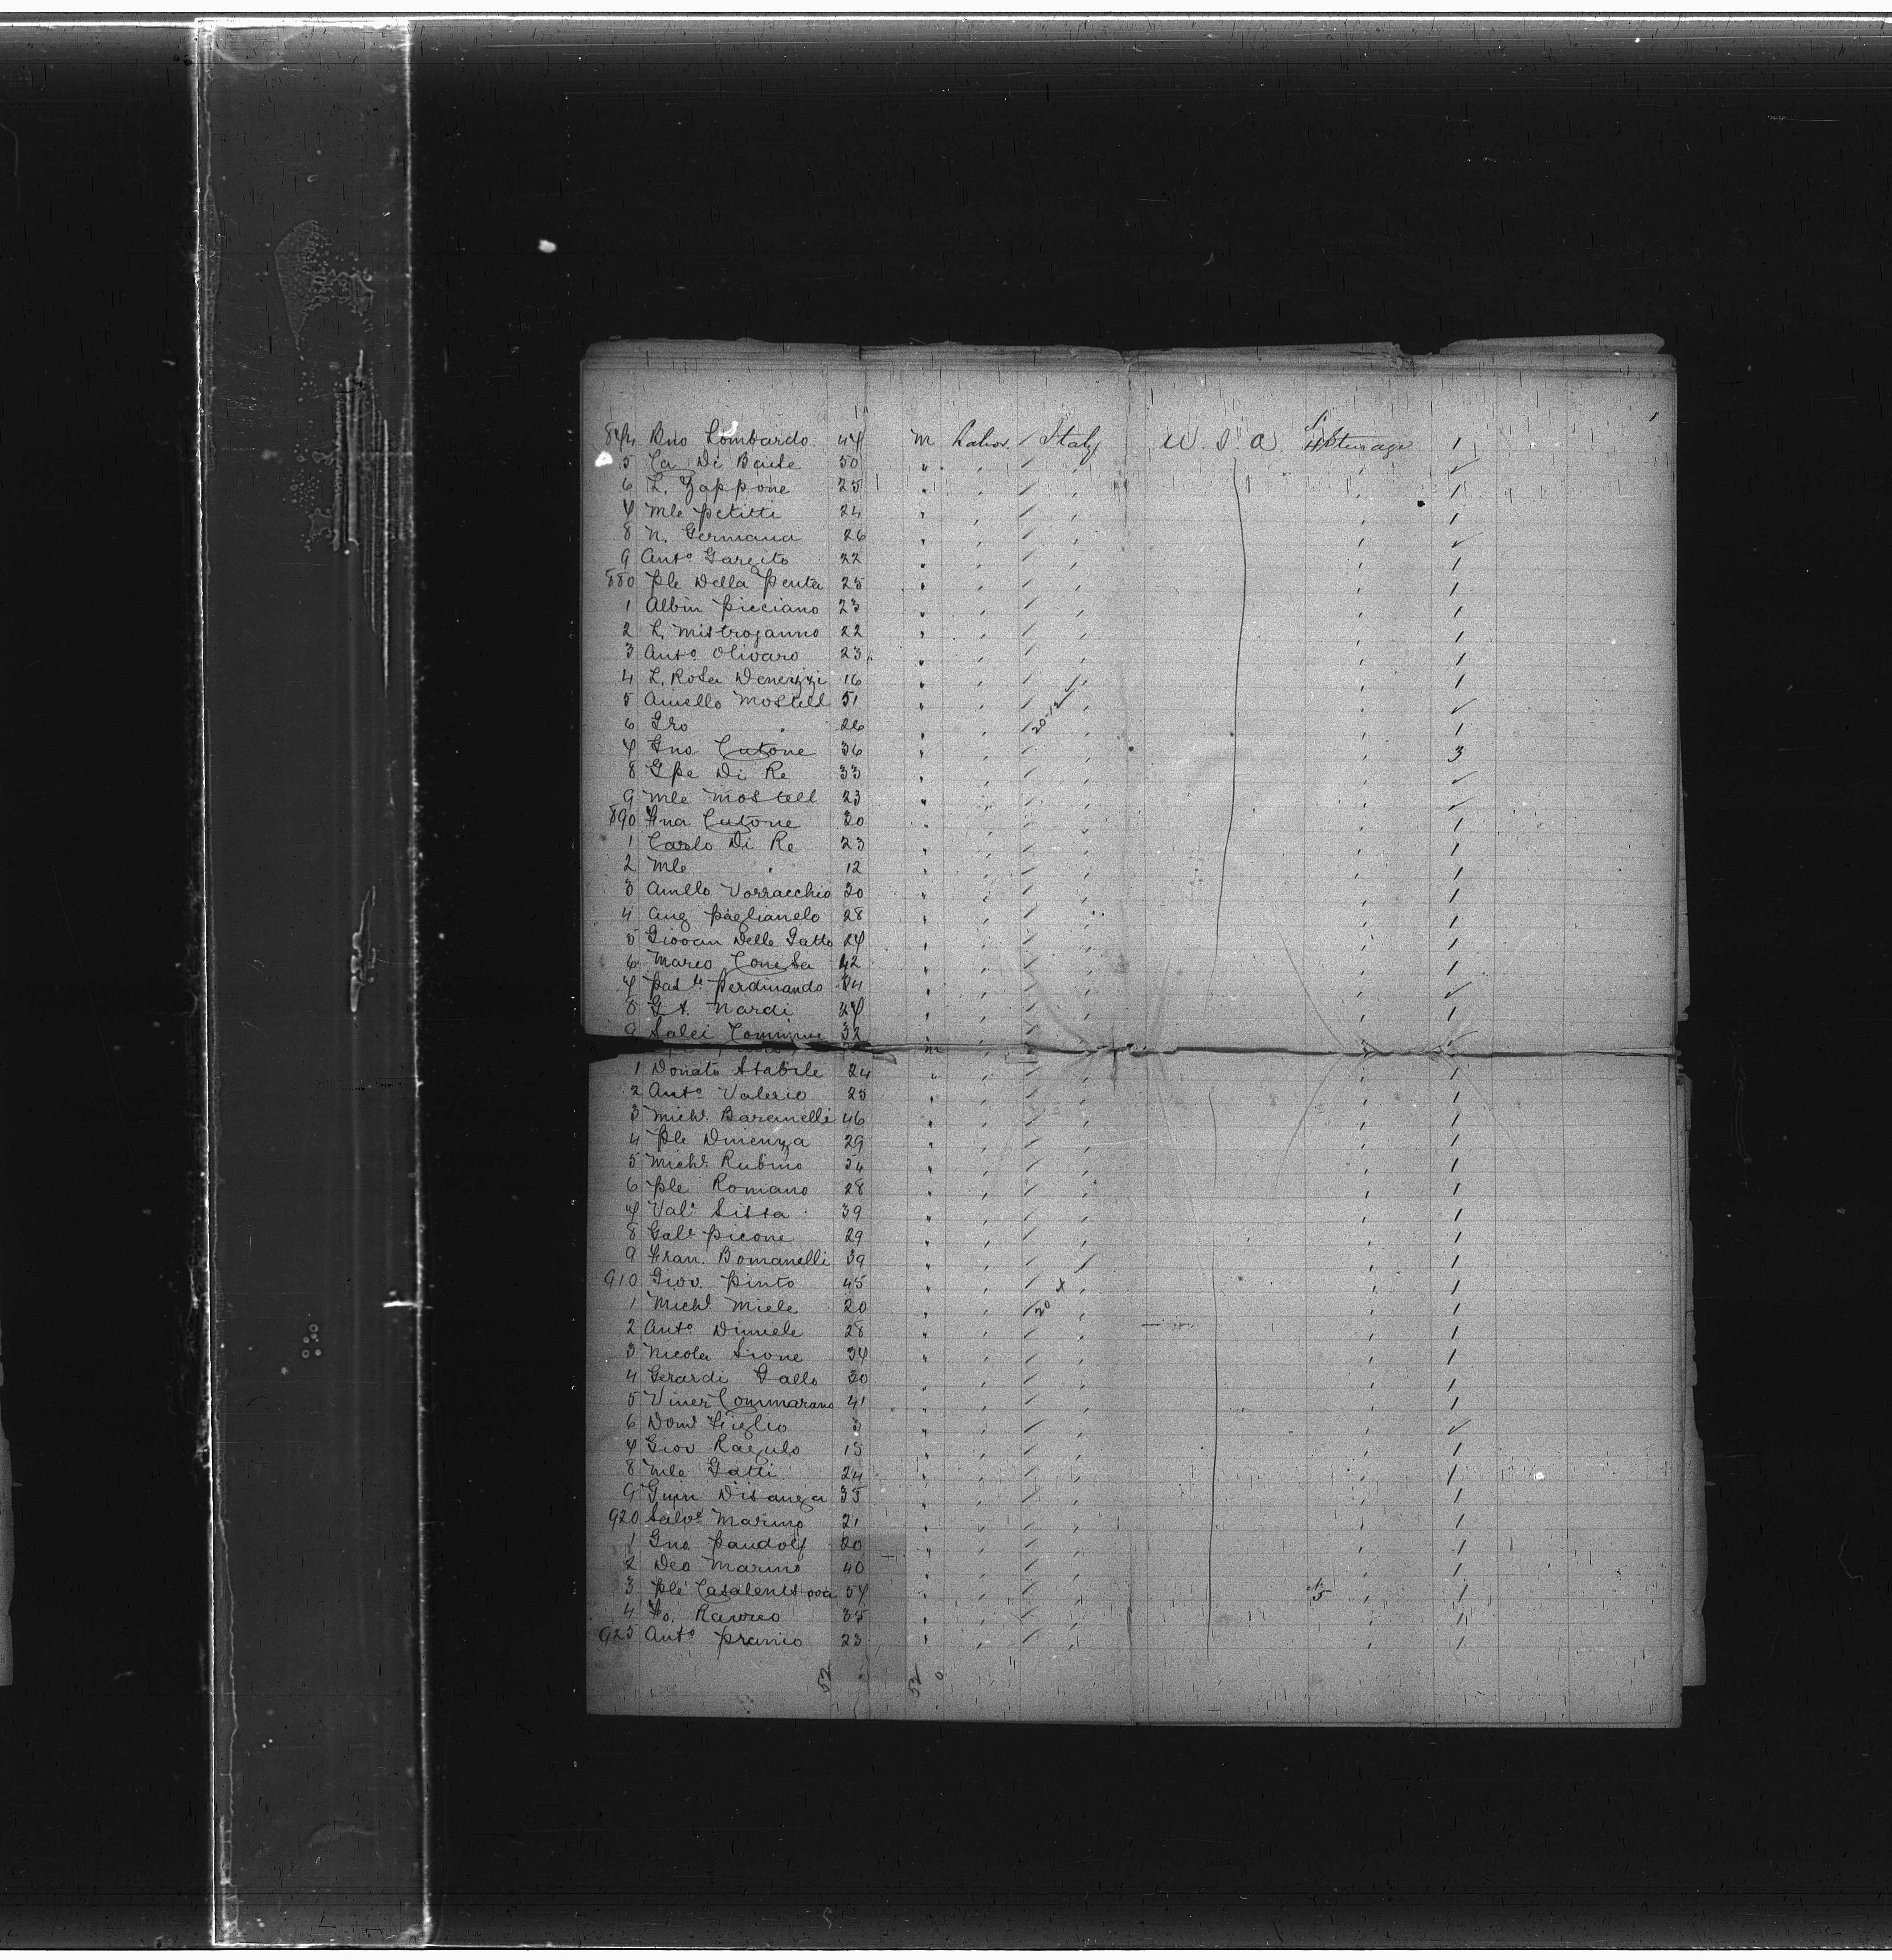 874 Bno Lombardo 47 m Labor / Italy U. S. A Steerage 1
5 Ca Di Baile 50 " , / , , ✓
6 L. Zappone 25 " , / , , 1
7 Mle Petitti 24 " , / , , 1
8 N. Germana 26 " , / , , ✓
9 Anto Gargito 22 " , / , , 1
880 Ple Della Penta 25 " , / , , 1
1 Albin Picciano 23 " , / , , 1
2 L. Mistroganno 22 " , / , , 1
3 Anto Olivaro 23 " , / , , 1
4 L. Rosa Denezzi 16 " , / , , 1
5 Aniello Mostell 51 " , / , , ✓
6 Gro " 26 " , / , , 1
7 Gno Cutone 36 " , / , , 3
8 Gpe Di Re 33 " , / , , ✓
9 Mle Mostell 23 " , / , , ✓
890 Fna Cutone 30 " , / , , 1
1 Carlo Di Re 23 " , / , , 1
2 Mle " 12 " , / , , 1
3 Anllo Vorracchio 30 " , / , , 1
4 Ang Paglianelo 28 " , / , , 1
5 Giovan Delle Gatto 27 " , / , , 1
6 Marco Conesa 42 " , / , , 1
7 Pasle Ferdinando 34 " , / , , ✓
8 G A. Nardi 27 " , / , , 1
9 Salei 32 , / , , ✓
m
1 Donato Stabile 24 " , / , , 1
2 Anto Valerio 25 " , / , , 1
3 Michl Baremelli 46 " , / , , 1
4 Ple Dinenza 29 " , / , , 1
5 Michl Rubino 34 " , / , , 1
6 Ple Romano 28 " , / , , 1
7 Vale Sissa 39 " , / , , 1
8 Gale Picone 29 " , / , , 1
9 Fran. Bomanelli 39 " , / , , 1
910 Giov. Pinto 45 " , / x , , 1
1 Michl Miele 20 " , / 20 , , 1
2 Anto Dimiele 28 " , / , , 1
3 Nicola Sione 37 " , / , , 1
4 Gerardi Gallo 30 " , / , , 1
5 Viner Commarano 41 " , / , , 1
6 Domo Figlio 3 " , / , , ✓
7 Giov Ragulo 15 " , / , , 1
8 Mle Gatti 24 " , / , , 1
9 Disanza 35 " , / , , 1
920 Salve Marino 21 " , / , , 1
1 Gno Pandolf 20 " , / , , 1
2 Deo Marino 40 " , / , , 1
3 Ple 57 " , / , 5 , 1
4 Fo. Rawreo 35 " , / , , 1
925 Anto Pranio 23 " , / , , 1
52 52 0